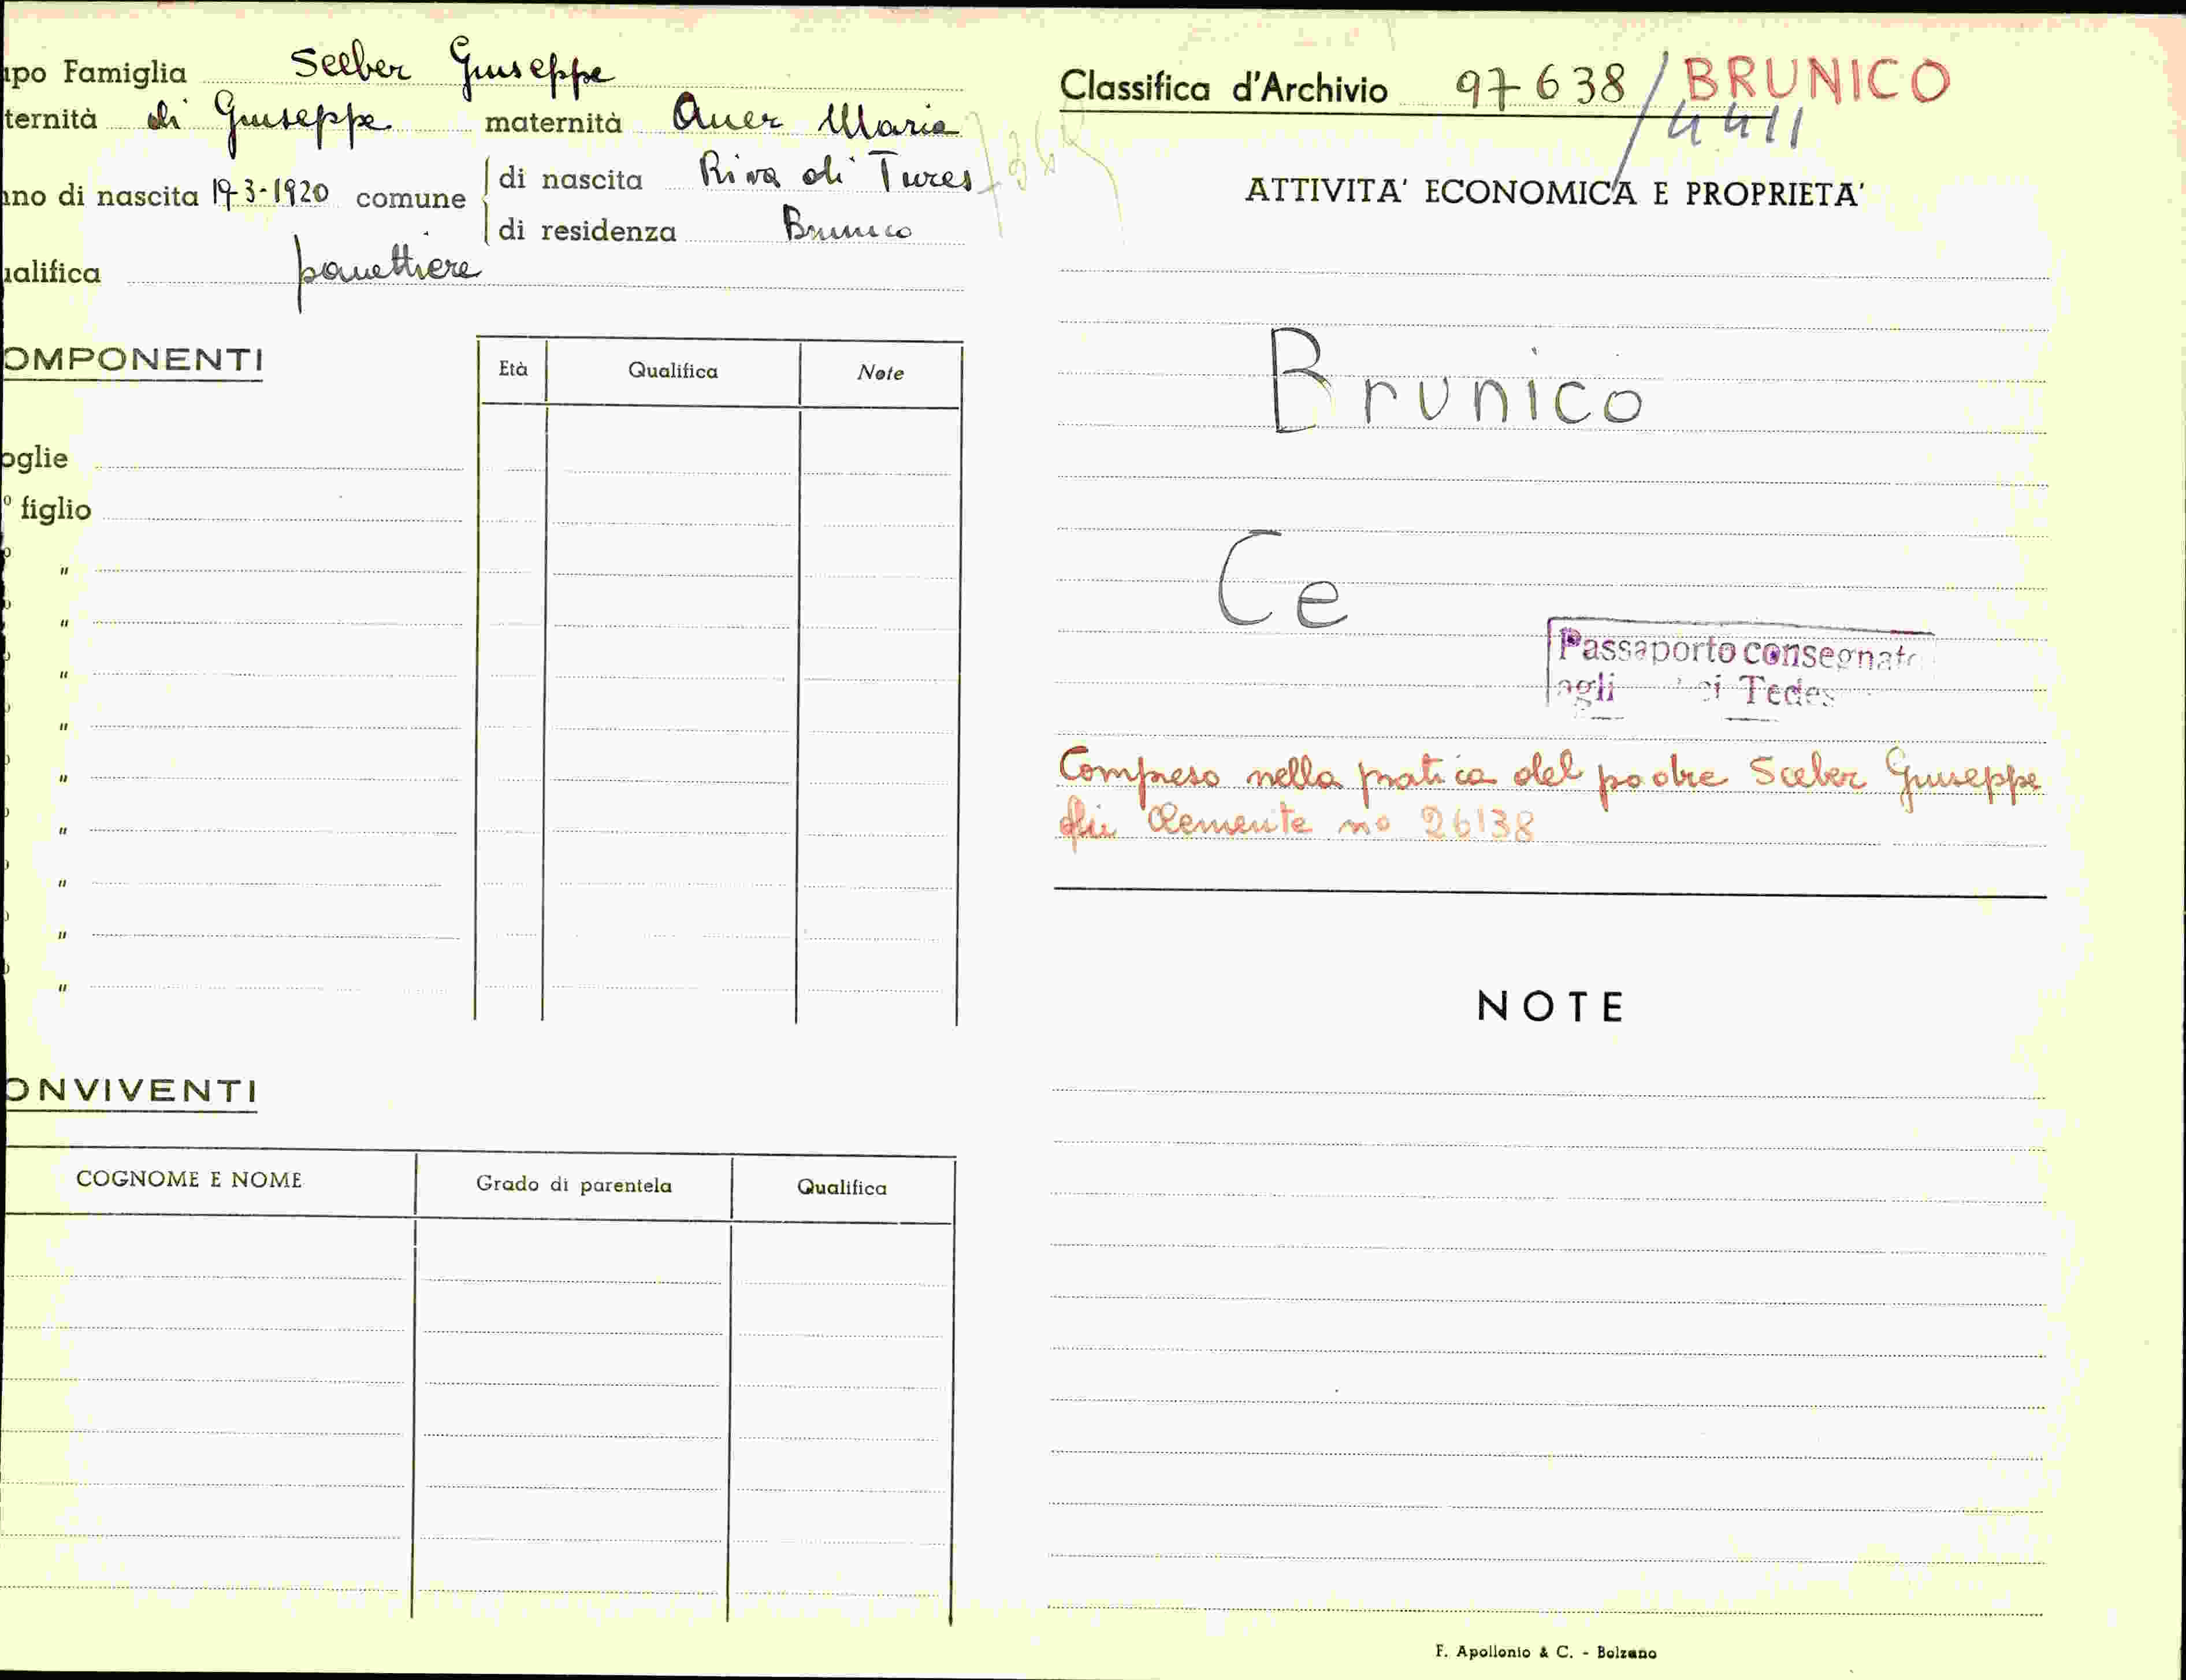 apo Famiglia Seeber Giuseppe
ternità di Giuseppe maternità Auer Maria
nno di nascita 19-3-1920 comune
di nascita Riva di Tures
di residenza Brunico
ualifica panettiere
OMPONENTI
Età Qualifica Note
oglie
° figlio
"
"
"
"
"
"
"
"
"
ONVIVENTI
COGNOME E NOME Grado di parentela Qualifica
Classifica d'Archivio 97638/BRUNICO
4411
ATTIVITA' ECONOMICA E PROPRIETA'
Brunico
Ce
Passaporto consegnato
agli Tedes
Compreso nella pratica del padre Seeber Giuseppe
fu Clemente no 26138
NOTE
F. Apollonio & C. - Bolzano